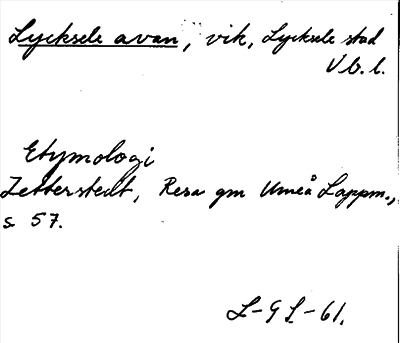 Lycksele avan, vik, Lycksele stad
Vb. l.
Etymologi
Zetterstedt, Resa gm Umeå Lappm.,
s 57.
L-G L-61.